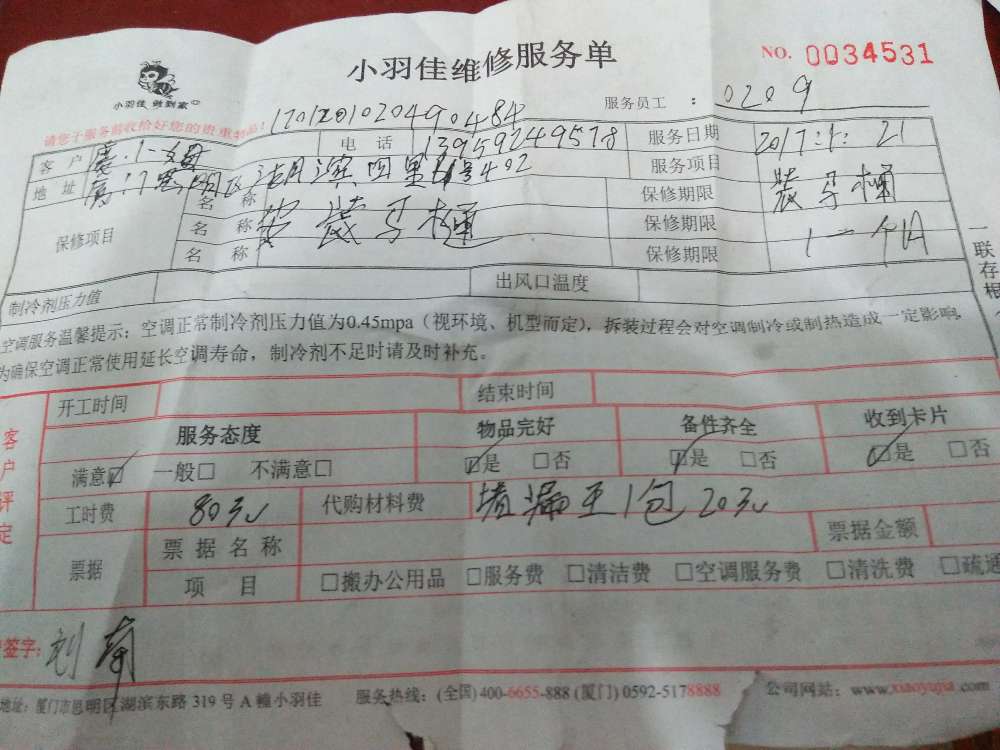 小羽佳维修服务单
NO. 0034531
小羽佳 做到家
请您于服务前收拾好您的贵重物品!
服务员工 : 0209
客 户 电 话 13959249578 服务日期 2017:1: 21
地 址 服务项目 装马桶
保修项目
名 称 安装马桶 保修期限
名 称 保修期限 1一个月
名 称 保修期限
一联存根
制冷剂压力值 出风口温度
空调服务温馨提示:空调正常制冷剂压力值为0.45mpa(视环境、机型而定),拆装过程会对空调制冷或制热造成一定影响,
为确保空调正常使用延长空调寿命,制冷剂不足时请及时补充。
客户评定
开工时间 结束时间
服务态度 物品完好 备件齐全 收到卡片
满意☑ 一般□ 不满意□ ☑是 □否 ☑是 □否 ☑是 □否
工时费 80元 代购材料费 堵漏王1包20元
票据 票据名称 票据金额
项 目 □搬办公用品 □服务费 □清洁费 □空调服务费 □清洗费 □疏通
签字:
地址:厦门市思明区湖滨东路 319 号 A 幢小羽佳 服务热线:(全国)400-6655-888 (厦门) 0592-5178888 公司网站:www.xiaoyujia.com